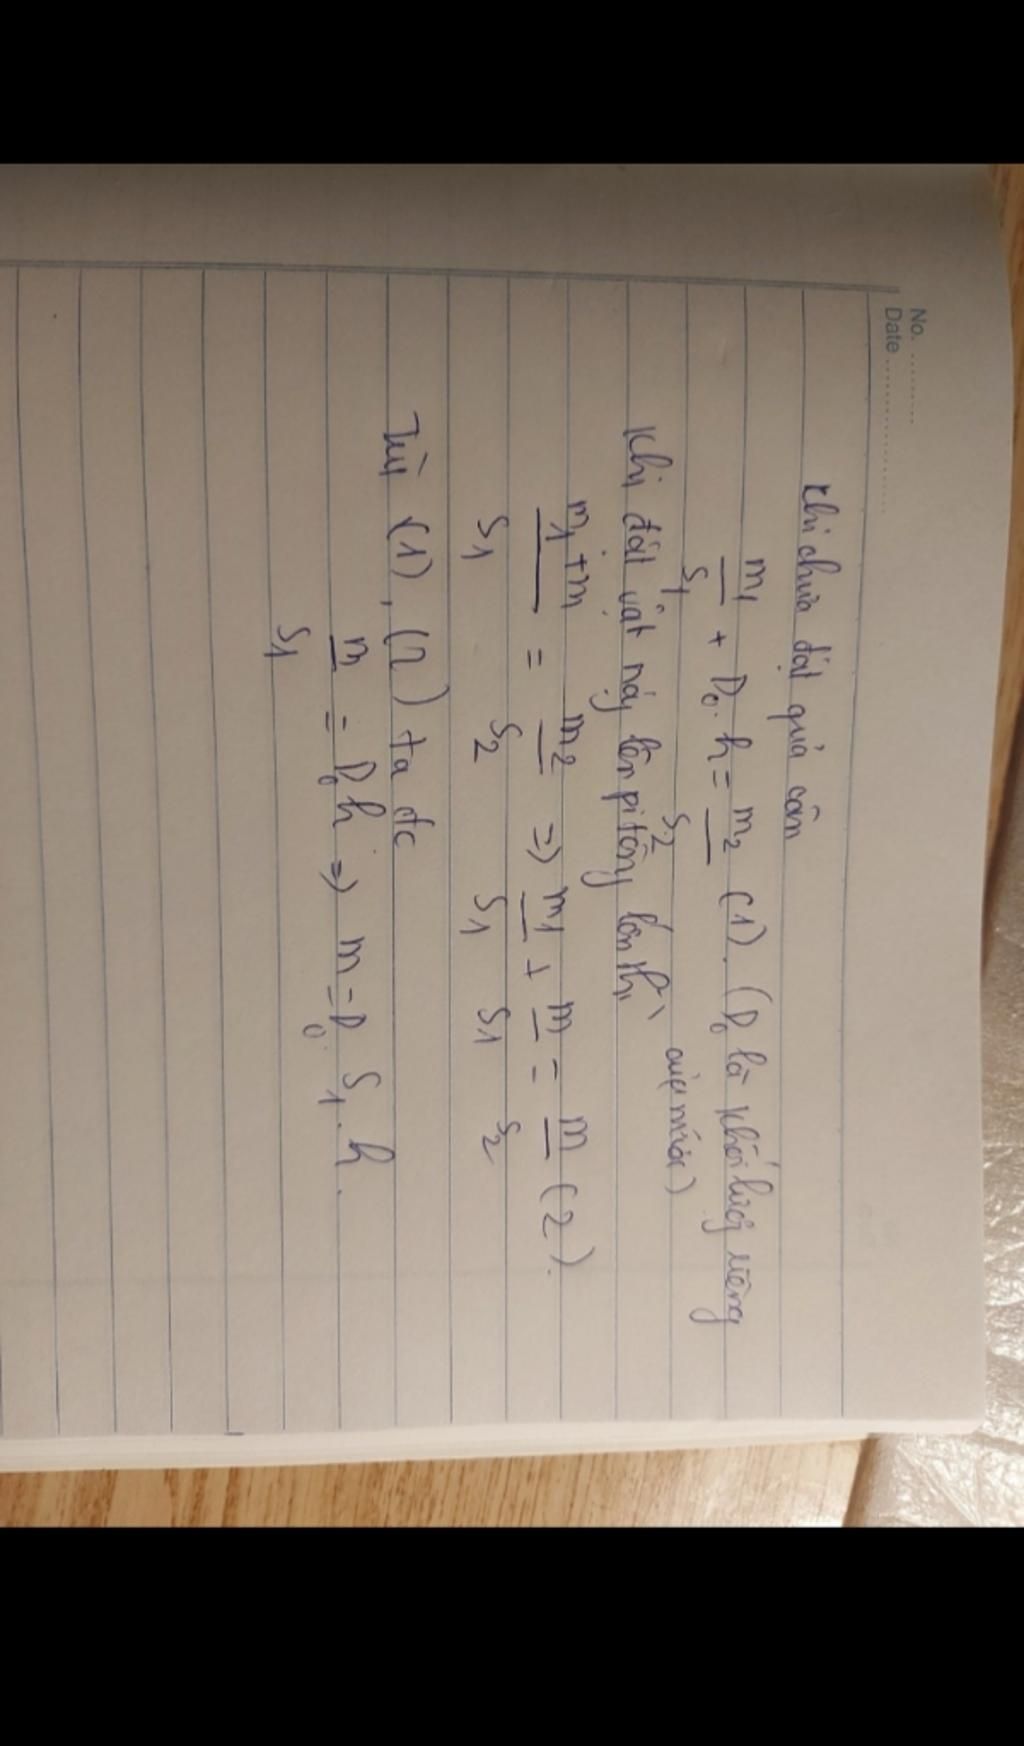 No. ..........
Date ....................
Khi chưa đặt quả cân
m₁/S₁ + D₀.h = m₂/S₂ (1). (D₀ là khối lượng riêng
của nước)
Khi đặt vật này lên pitông lớn thì
m₁+m/S₁ = m₂/S₂ => m₁/S₁ + m/S₁ = m/S₂ (2).
Từ (1), (2) ta đc
m/S₁ = D₀h => m = D₀. S₁. h.